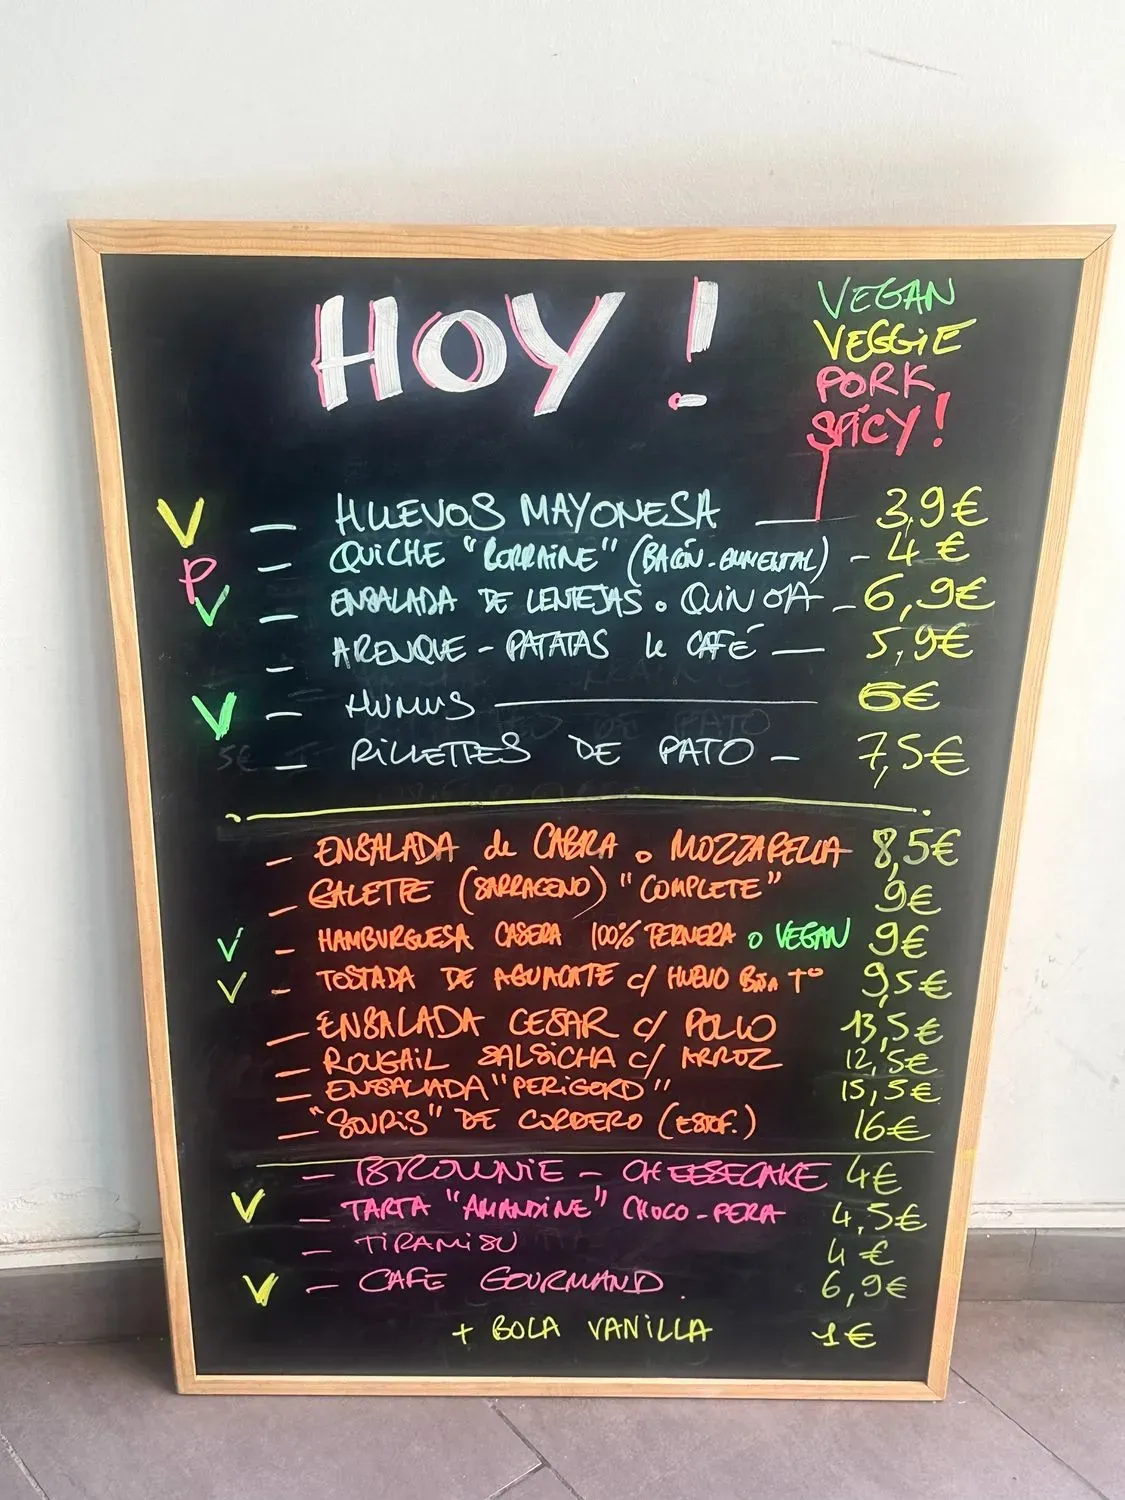 HOY !
VEGAN
VEGGIE
PORK
SPICY !
V — HUEVOS MAYONESA — 3,9€
P — QUICHE "LORRAINE" (BACÓN - EMMENTAL) - 4 €
V — ENSALADA DE LENTEJAS o QUINOA - 6,9€
— ARENQUE - PATATAS le CAFÉ — 5,9€
V — HUMUS — 6€
— RILLETTES DE PATO - 7,5€
- ENSALADA de CABRA o MOZZARELLA 8,5€
- GALETTE (SARRACENO) "COMPLETE" 9€
V - HAMBURGUESA CASERA 100% TERNERA o VEGAN 9€
V - TOSTADA DE AGUACATE c/ HUEVO Baja Tº 9,5€
- ENSALADA CESAR c/ POLLO 13,5€
- ROUGAIL SALSICHA c/ ARROZ 12,5€
- ENSALADA "PERIGORD" 15,5€
- "SOURIS" DE CORDERO (ESTOF.) 16€
- BROWNIE - CHEESECAKE 4€
V - TARTA "AMANDINE" CHOCO - PERA 4,5€
- TIRAMISU 4 €
V - CAFE GOURMAND. 6,9€
+ BOLA VANILLA 1€